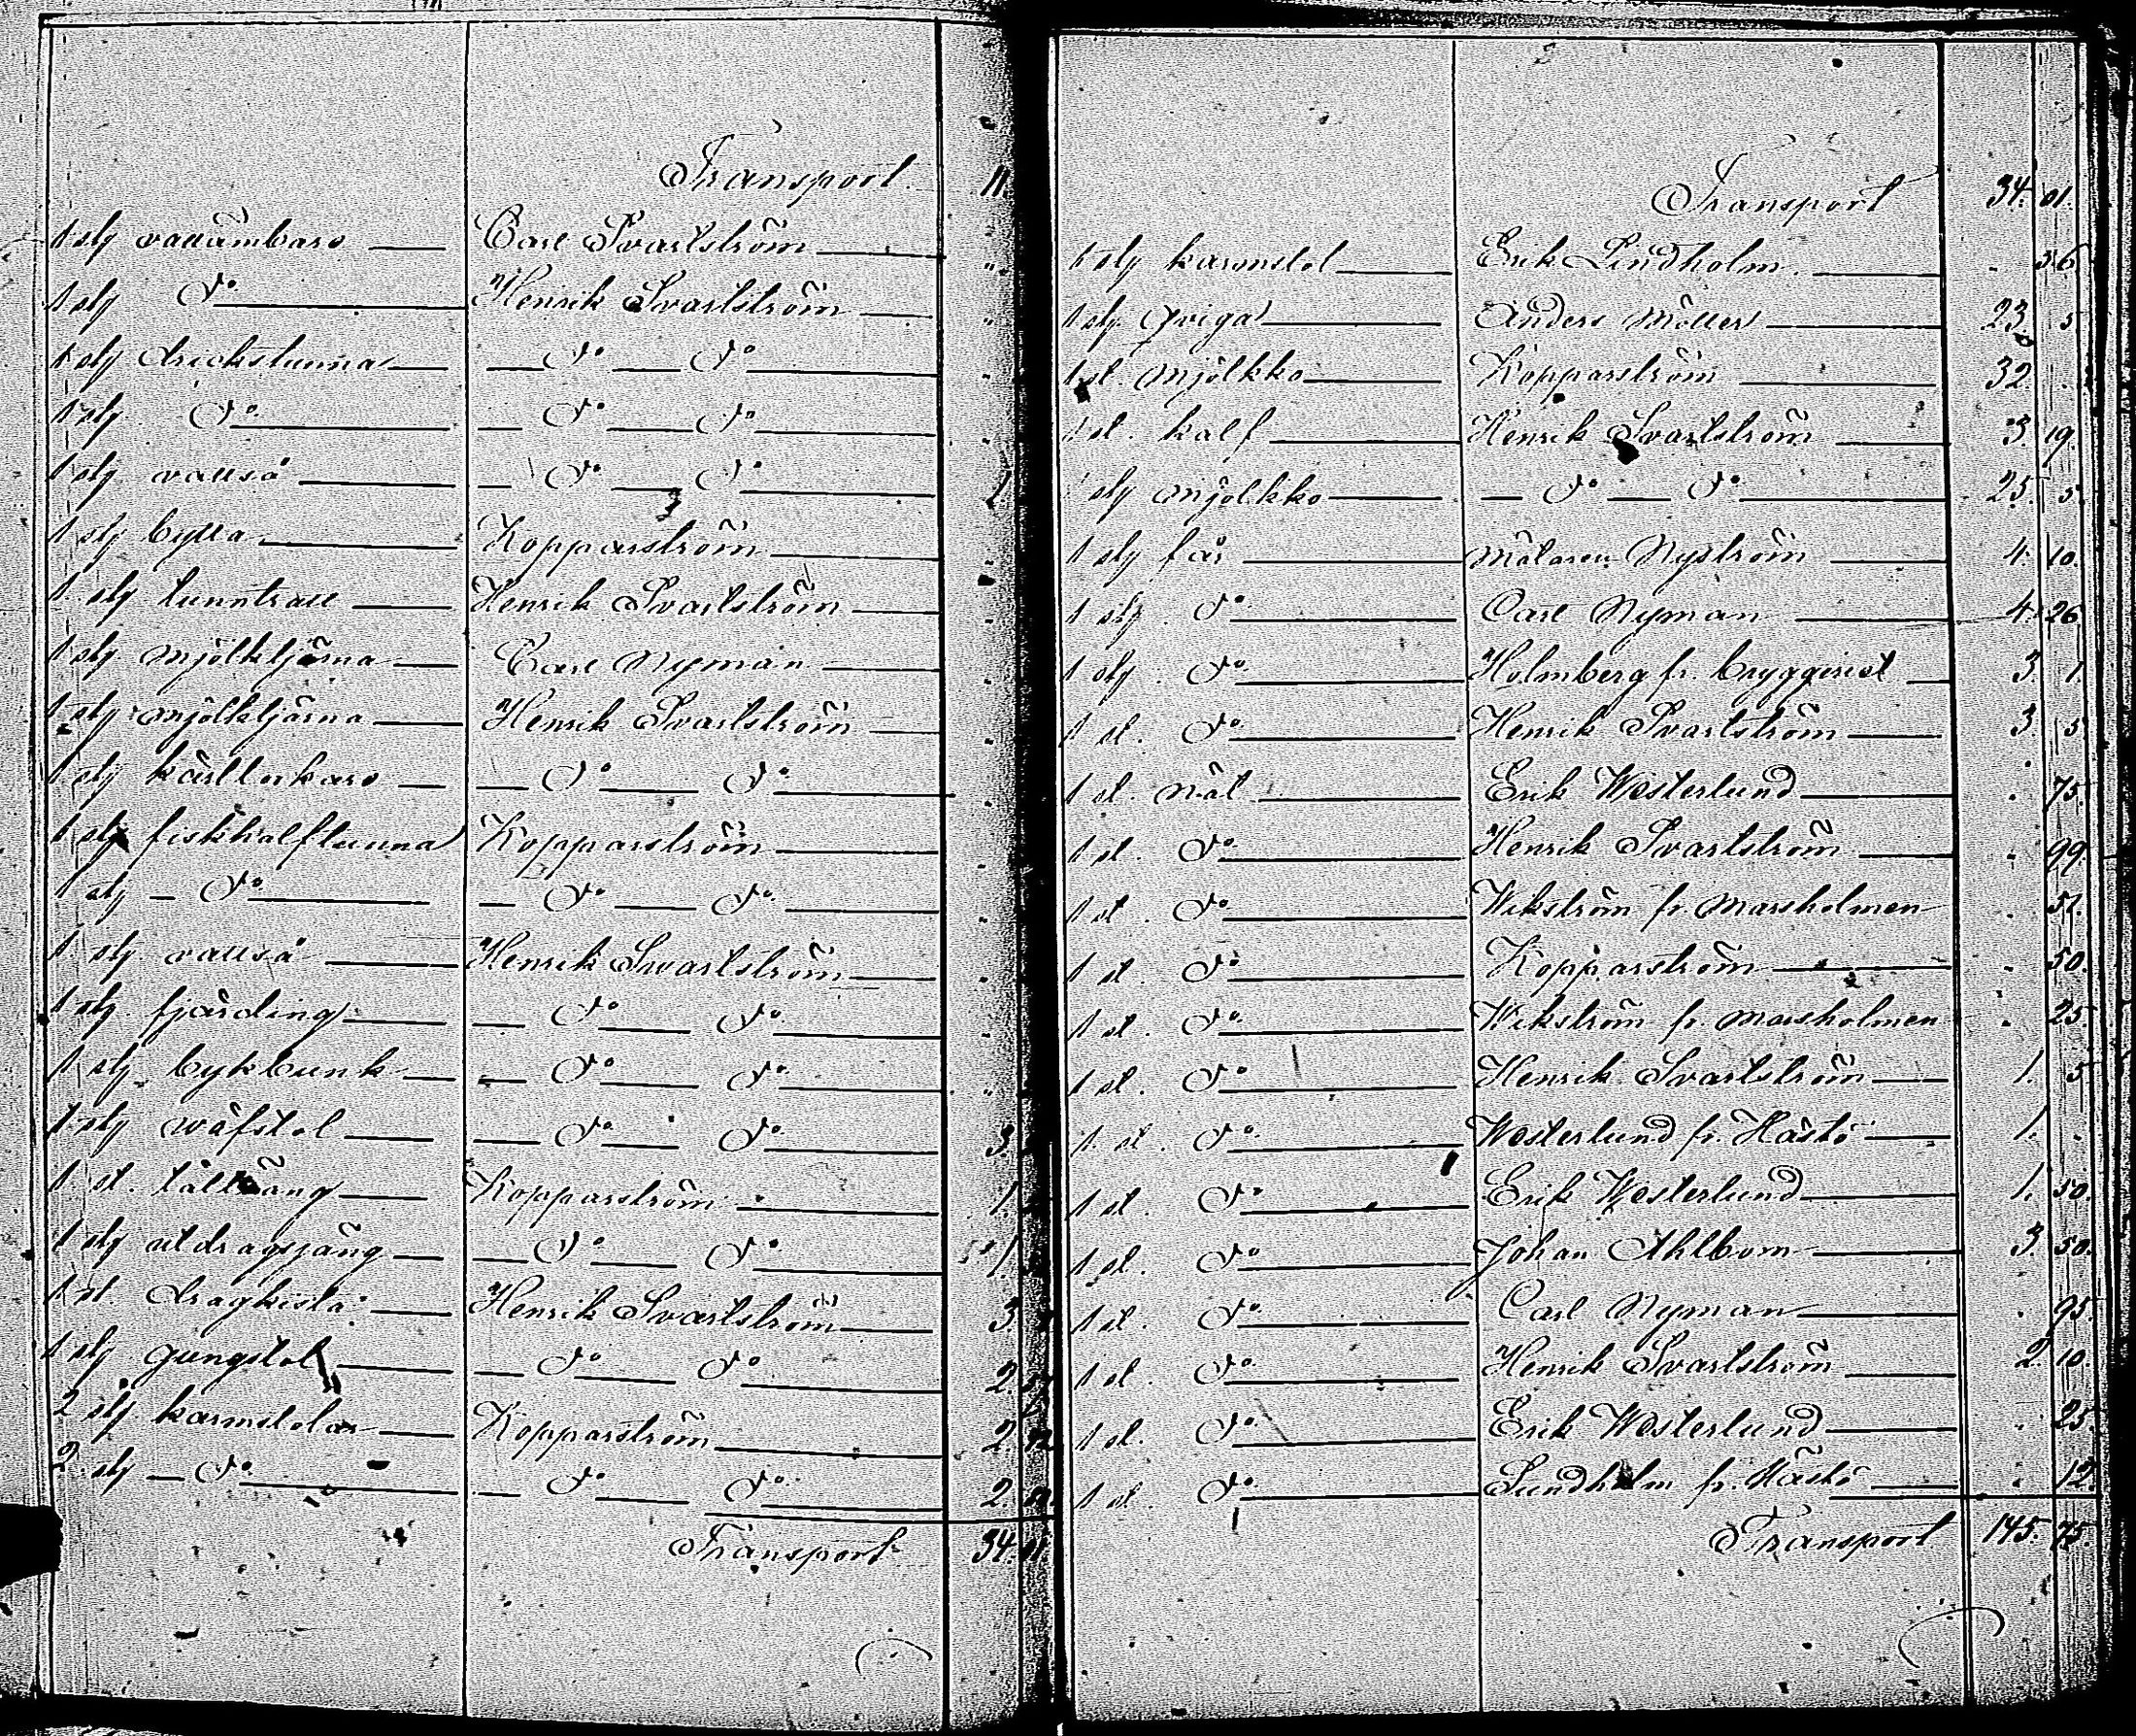 Transport. 11
1 stj vattämbare Carl Svartström
1 stj Do Henrik Svartström
1 stj drickstunna Do Do
1 stj Do Do Do
1 stj vattså Do Do 1.
1 stj bytta Kopparström
1 stj tunntratt Henrik Svartström
1 stj mjölktjärna Carl Nyman
1 stj mjölktjärna Henrik Svartström
1 stj Do Do
1 stj fiskhalftunna Kopparström
1 stj Do Do Do
1 stj vattså Henrik Svartström
1 stj fjärding Do Do
1 stj bykbunk Do Do
1 stj wäfstol Do Do 3
1 st. tältsäng Kopparström 1.
1 stj utdragssäng Do Do 1.
1 st. dragkista Henrik Svartström 3.
1 stj gungstol Do Do 2.
2 stj karmstolar Kopparström 2.
2 stj Do Do Do 2.
Transport 34. 01
Transport 34. 01.
1 stj karmstol Erik Lindholm . 36
1 stj. qviga Anders Möller 23 5
1 st. mjölkko Kopparström 32 .
1 st. kalf Henrik Svartström 3 19.
1 stj mjölkko Do Do 25. 5
1 stj får Målaren Nyström 4. 10.
1 stj. Do Carl Nyman 4. 26
1 stj. Do Holmberg fr. bryggeriet 3. 1
1 st. Do Henrik Svartström 3. 5
1 st. nät Erik Westerlund . 75.
1 st. Do Henrik Svartström . 99.
1 st. Do Wikström fr. Marsholmen . 51.
1 st. Do Kopparström . 50.
1 st. Do Wikström fr. Marsholmen . 25.
1 st. Do Henrik Svartström 1. 5
1 st. Do Westerlund fr. Hästö 1. .
1 st. Do Erik Westerlund 1. 50.
1 st. Do Johan Ahlbom 3. 50.
1 st. Do Carl Nyman . 95.
1 st. Do Henrik Svartström 2. 10.
1 st. Do Erik Westerlund . 25.
1 st. Do Sundholm fr. Hästö . 12.
Transport 145. 75.